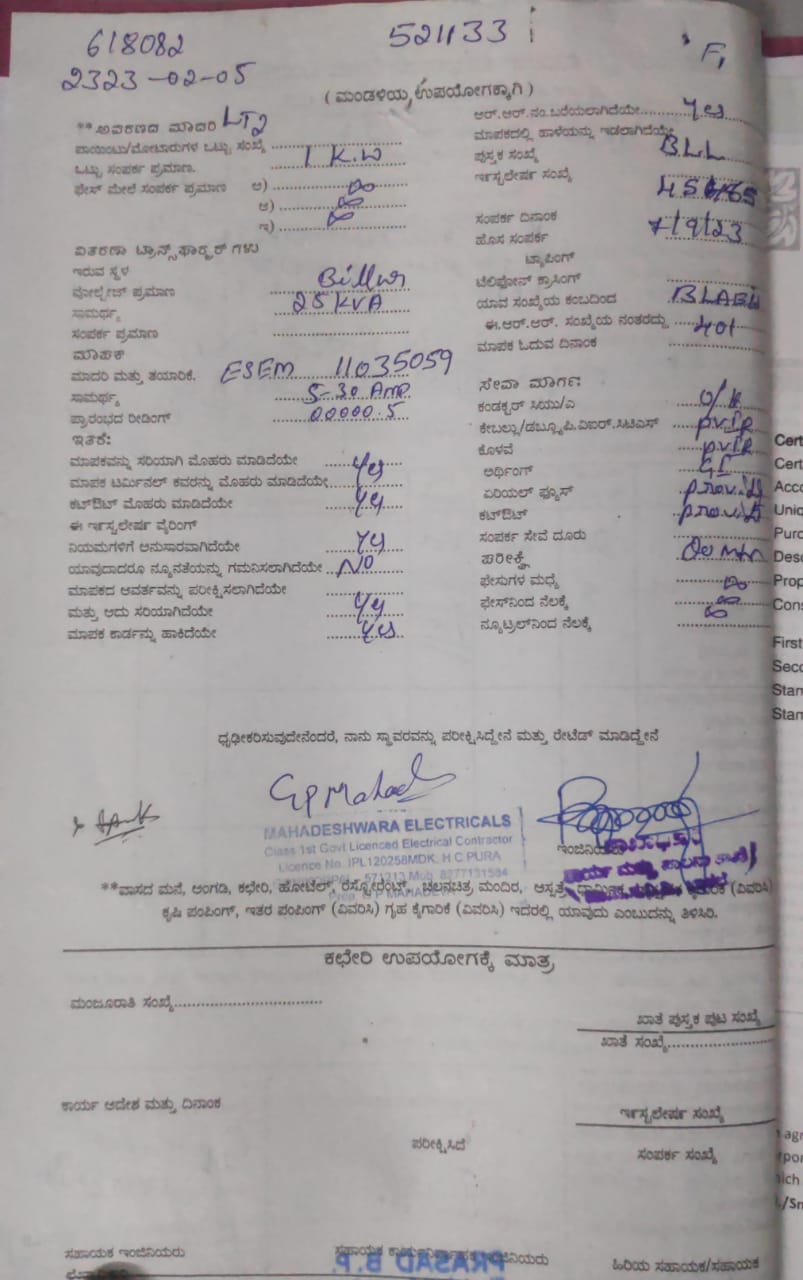 618082
521133
F1
2323-02-05
( ಮಂಡಳಿಯ ಉಪಯೋಗಕ್ಕಾಗಿ )
**ಆವರಣದ ಮಾದರಿ LT2
ಪಾಯಿಂಟು/ಮೋಟಾರುಗಳ ಒಟ್ಟು ಸಂಖ್ಯೆ
ಒಟ್ಟು ಸಂಪರ್ಕ ಪ್ರಮಾಣ. 1 K.W
ಫೇಸ್ ಮೇಲೆ ಸಂಪರ್ಕ ಪ್ರಮಾಣ ಅ)
ಆ)
ಇ)
ವಿತರಣಾ ಟ್ರಾನ್ಸ್‌ಫಾರ್ಮರ್‌ಗಳು
ಇರುವ ಸ್ಥಳ
ವೋಲ್ಟೇಜ್ ಪ್ರಮಾಣ
ಸಾಮರ್ಥ್ಯ 25 KVA
ಸಂಪರ್ಕ ಪ್ರಮಾಣ
ಮಾಪಕ
ಮಾದರಿ ಮತ್ತು ತಯಾರಿಕೆ. ESEM 11035059
ಸಾಮರ್ಥ್ಯ 5-30 Amp
ಪ್ರಾರಂಭದ ರೀಡಿಂಗ್ 00000.5
ಇತರೆ:
ಮಾಪಕವನ್ನು ಸರಿಯಾಗಿ ಮೊಹರು ಮಾಡಿದೆಯೇ Yes
ಮಾಪಕ ಟರ್ಮಿನಲ್ ಕವರನ್ನು ಮೊಹರು ಮಾಡಿದೆಯೇ Yes
ಕಟ್‌ಔಟ್ ಮೊಹರು ಮಾಡಿದೆಯೇ Yes
ಈ ಇನ್ಸ್ಟಲೇಷನ್ ವೈರಿಂಗ್
ನಿಯಮಗಳಿಗೆ ಅನುಸಾರವಾಗಿದೆಯೇ Yes
ಯಾವುದಾದರೂ ನ್ಯೂನತೆಯನ್ನು ಗಮನಿಸಲಾಗಿದೆಯೇ NO
ಮಾಪಕದ ಆವರ್ತವನ್ನು ಪರೀಕ್ಷಿಸಲಾಗಿದೆಯೇ
ಮತ್ತು ಅದು ಸರಿಯಾಗಿದೆಯೇ Yes
ಮಾಪಕ ಕಾರ್ಡನ್ನು ಹಾಕಿದೆಯೇ Yes
ಆರ್.ಆರ್.ನಂ.ಬರೆಯಲಾಗಿದೆಯೇ Yes
ಮಾಪಕದಲ್ಲಿ ಹಾಳೆಯನ್ನು ಇಡಲಾಗಿದೆಯೇ
ಪುಸ್ತಕ ಸಂಖ್ಯೆ BLL
ಇನ್ಸ್ಟಲೇಷನ್ ಸಂಖ್ಯೆ
ಸಂಪರ್ಕ ದಿನಾಂಕ 7/9/23
ಹೊಸ ಸಂಪರ್ಕ
ಟ್ಯಾಪಿಂಗ್
ಟೆಲಿಫೋನ್ ಕ್ರಾಸಿಂಗ್
ಯಾವ ಸಂಖ್ಯೆಯ ಕಂಬದಿಂದ
ಈ.ಆರ್.ಆರ್. ಸಂಖ್ಯೆಯ ನಂತರದ್ದು 401
ಮಾಪಕ ಓದುವ ದಿನಾಂಕ
ಸೇವಾ ಮಾರ್ಗ:
ಕಂಡಕ್ಟರ್ ಸಿಯು/ಎ O/H
ಕೇಬಲ್ಲು/ಡಬ್ಲ್ಯೂ.ಪಿ.ಐಆರ್.ಸಿಟಿಎಸ್
ಕೊಳವೆ
ಅರ್ಥಿಂಗ್
ಏರಿಯಲ್ ಫ್ಯೂಸ್
ಕಟ್‌ಔಟ್
ಸಂಪರ್ಕ ಸೇವೆ ದೂರ
ಪರೀಕ್ಷೆ
ಫೇಸುಗಳ ಮಧ್ಯೆ
ಫೇಸ್‌ನಿಂದ ನೆಲಕ್ಕೆ
ನ್ಯೂಟ್ರಲ್‌ನಿಂದ ನೆಲಕ್ಕೆ
Cert
Cert
Acco
Uniq
Purc
Desc
Prop
Cons
First
Seco
Stan
Stan
ಧೃಢೀಕರಿಸುವುದೇನೆಂದರೆ, ನಾನು ಸ್ಥಾವರವನ್ನು ಪರೀಕ್ಷಿಸಿದ್ದೇನೆ ಮತ್ತು ರೇಟೆಡ್ ಮಾಡಿದ್ದೇನೆ
MAHADESHWARA ELECTRICALS
Class 1st Govt Licenced Electrical Contractor
Licence No. IPL120258MDK, H C PURA
571213 Mob. 8277131584
ಇಂಜಿನಿಯರು
**ವಾಸದ ಮನೆ, ಅಂಗಡಿ, ಕಛೇರಿ, ಹೋಟೆಲ್, ರೆಸ್ಟೋರೆಂಟ್, ಚಲನಚಿತ್ರ ಮಂದಿರ, ಆಸ್ಪತ್ರೆ, (ವಿವರಿಸಿ)
ಕೃಷಿ ಪಂಪಿಂಗ್, ಇತರ ಪಂಪಿಂಗ್ (ವಿವರಿಸಿ) ಗೃಹ ಕೈಗಾರಿಕೆ (ವಿವರಿಸಿ) ಇದರಲ್ಲಿ ಯಾವುದು ಎಂಬುದನ್ನು ತಿಳಿಸಿರಿ.
ಕಛೇರಿ ಉಪಯೋಗಕ್ಕೆ ಮಾತ್ರ
ಮಂಜೂರಾತಿ ಸಂಖ್ಯೆ
ಖಾತೆ ಪುಸ್ತಕ ಪುಟ ಸಂಖ್ಯೆ
ಖಾತೆ ಸಂಖ್ಯೆ
ಕಾರ್ಯ ಆದೇಶ ಮತ್ತು ದಿನಾಂಕ
ಇನ್ಸ್ಟಲೇಷನ್ ಸಂಖ್ಯೆ
ಪರೀಕ್ಷಿಸಿದೆ
ಸಂಪರ್ಕ ಸಂಖ್ಯೆ
ಸಹಾಯಕ ಇಂಜಿನಿಯರು
ಹಿರಿಯ ಸಹಾಯಕ/ಸಹಾಯಕ
PRASAD B.P.